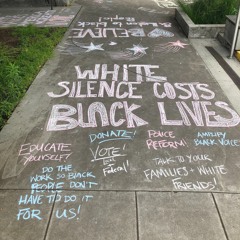 Listen to black
People!
BELIEVE
WHITE
SILENCE COSTS
BLACK LIVES
EDUCATE
YOURSELF?
DO THE
WORK SO BLACK
PEOPLE DON'T
HAVE TO DO IT
FOR US!
DONATE!
VOTE!
Local +
Federal!
POLICE
REFORM!
AMPLIFY
BLACK VOICES
TALK TO YOUR
FAMILIES + WHITE
FRIENDS!